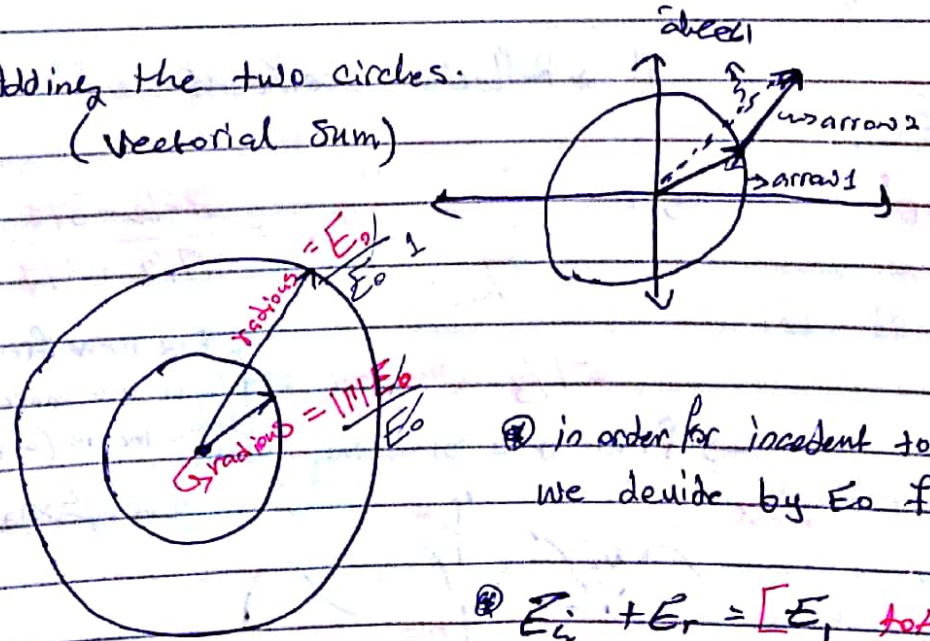 dding the two circles.
(Vectorial Sum)
arrow 2
arrow 1
radious = E₀/E₀ 1
radious = |Γ|E₀/E₀
⊛ in order for incedent to
we devide by E₀ f
⊛ Ei + Er = [E, tot